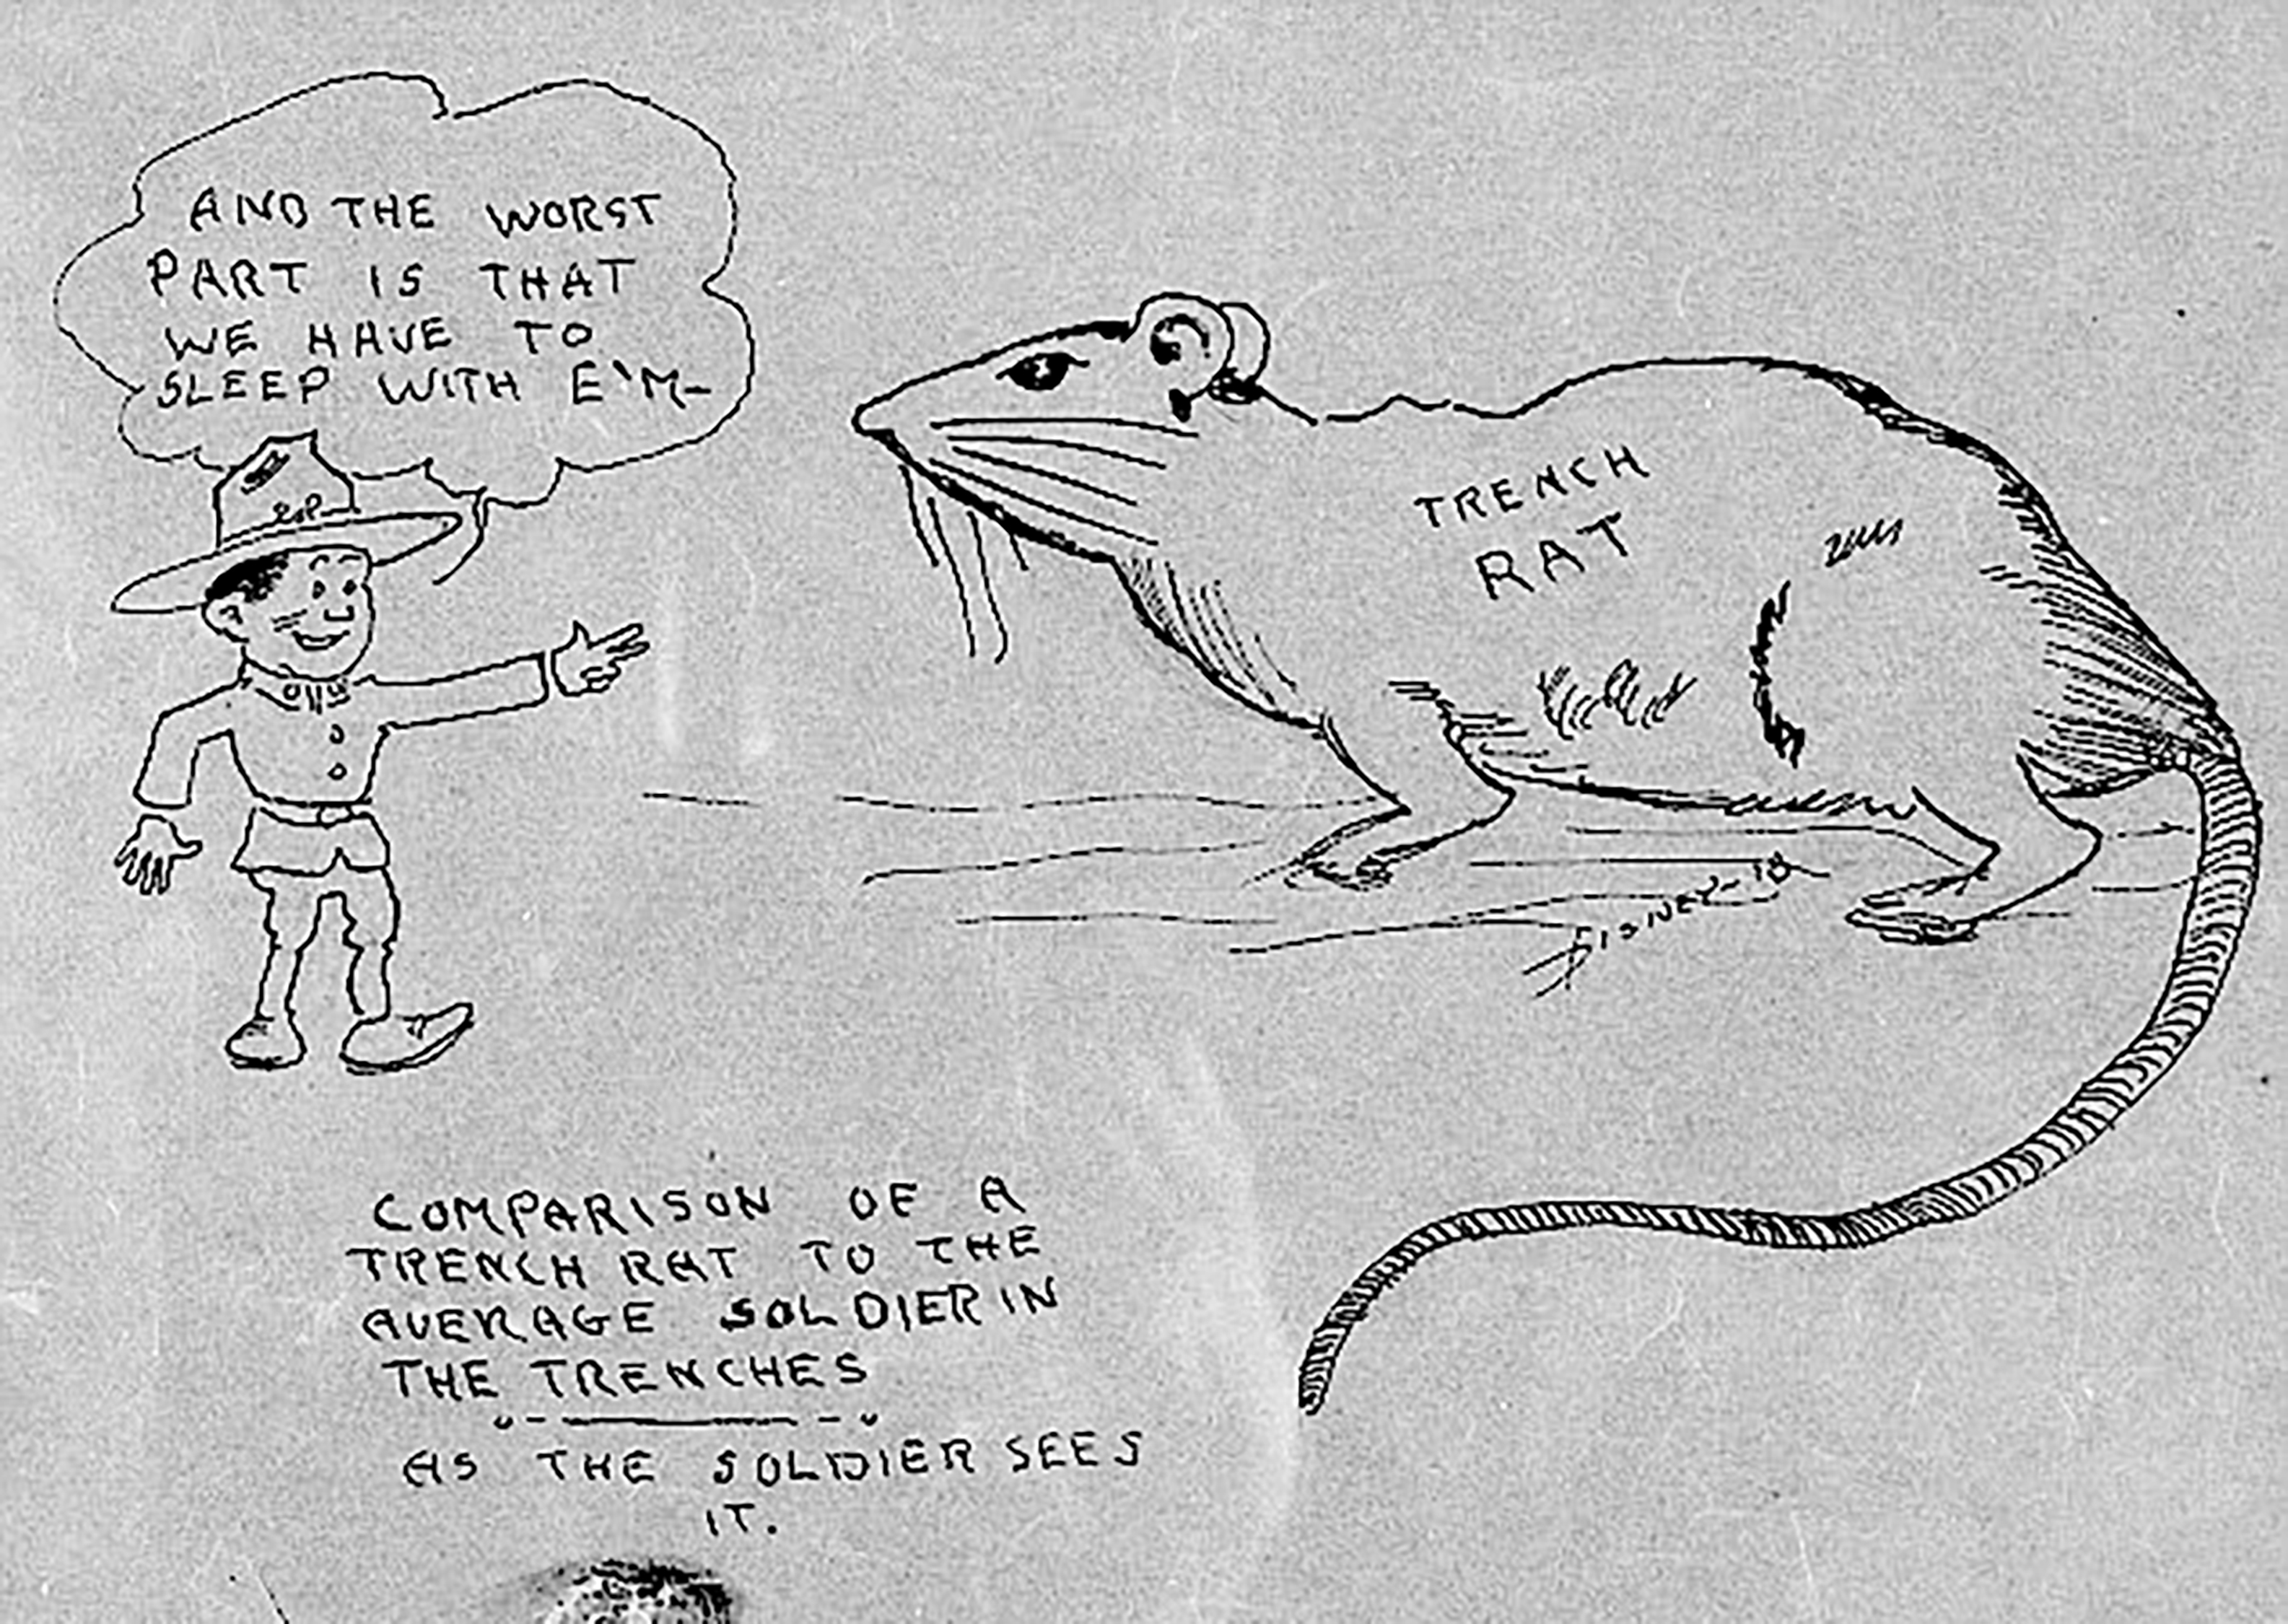 AND THE WORST
PART IS THAT
WE HAVE TO
SLEEP WITH E'M-
TRENCH
RAT
DISNEY-18
COMPARISON OF A
TRENCH RAT TO THE
AVERAGE SOLDIER IN
THE TRENCHES
AS THE SOLDIER SEES
IT.